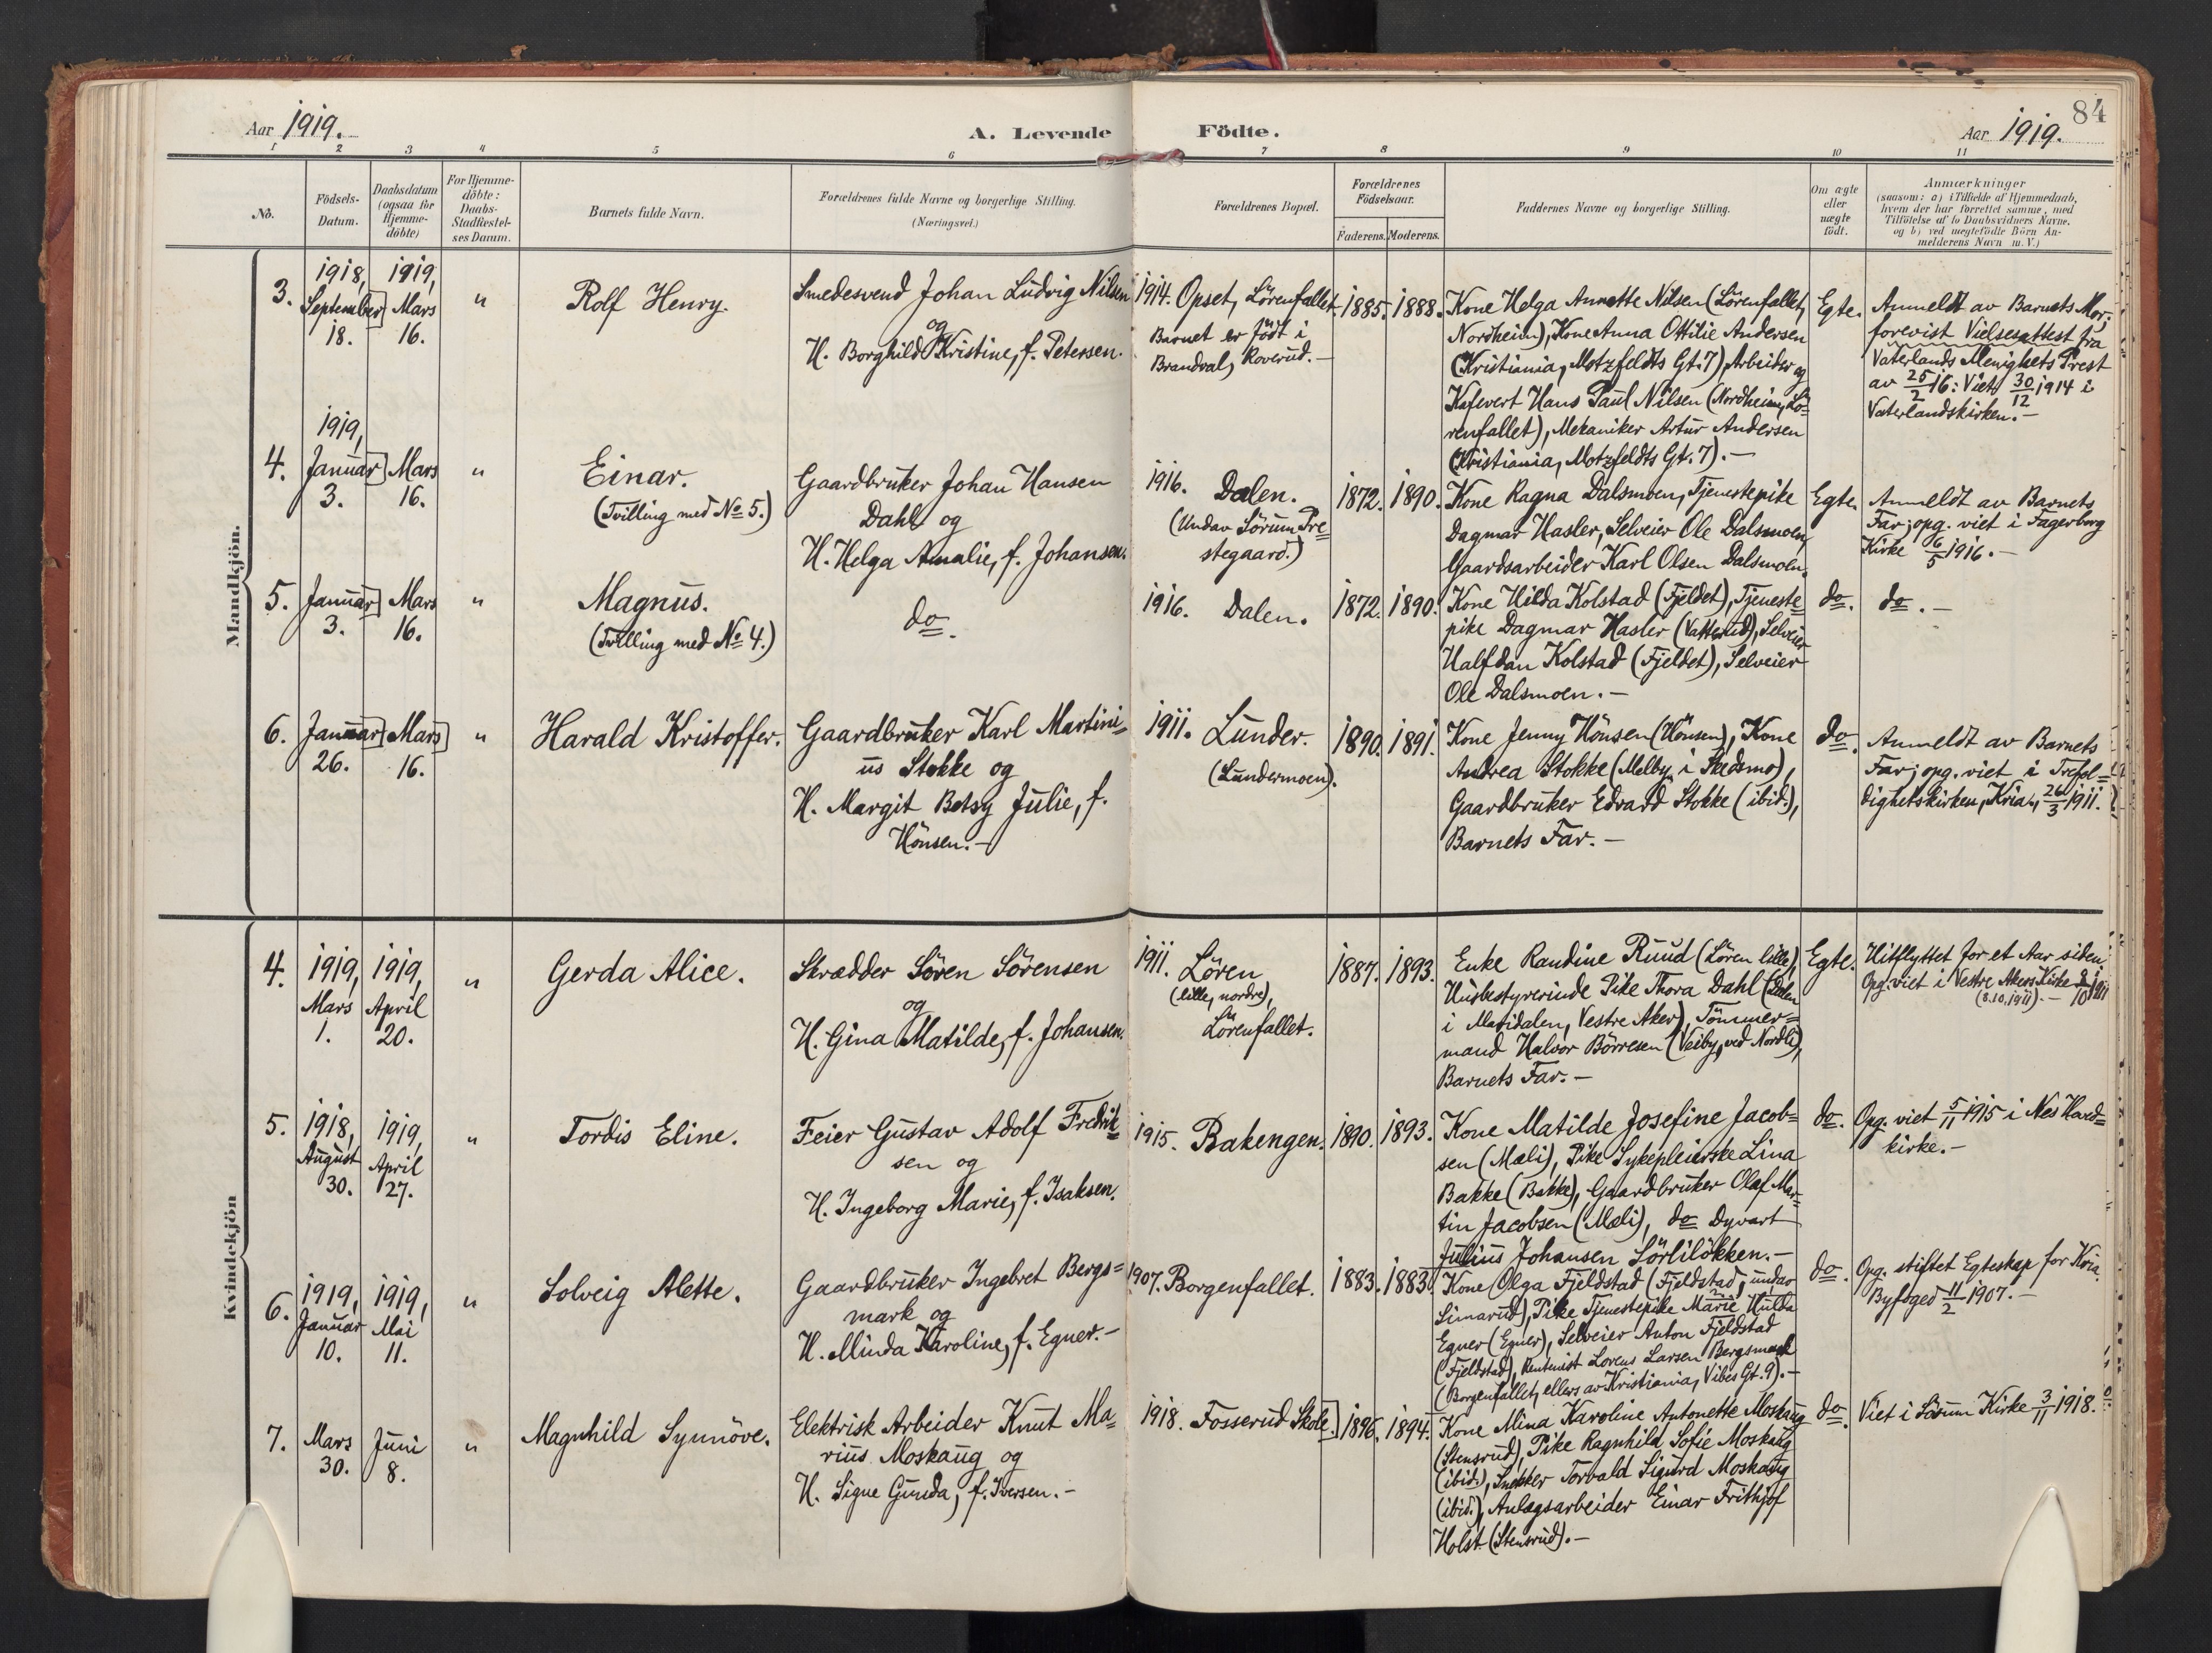 84
Aar 1919.
A. Levende Födte.
Aar 1919.
1 2 3 4 5 6 7 8 9 10 11
No.
Födsels-
Datum.
Daabsdatum
(ogsaa for
Hjemme-
döbte)
For Hjemme-
döbte:
Daabs-
Stadfæstel-
ses Datum.
Barnets fulde Navn.
Forældrenes fulde Navne og borgerlige Stilling.
(Næringsvei.)
Forældrenes Bopæl.
Forældrenes
Födselsaar.
Faderens. Moderens.
Faddernes Navne og borgerlige Stilling.
Om ægte
eller
uægte
födt.
Anmærkninger
(saasom: a) i Tilfælde af Hjemmedaab,
hvem der har forrettet samme, med
Tilföielse af to Daabsvidners Navne,
og b) ved uegtefödte Börn An-
melderens Navn m. V.)
Mandkjön.
3.
1918,
September
18.
1919,
Mars
16.
"
Rolf Henry.
Smedesvend Johan Ludvig Nilsen
og
H. Borghild Kristine, f. Petersen.
1914. Opset, Lörenfallet.
Barnet er födt i
Brandval, Roverud.-
1885. 1888.
Kone Helga Annette Nilsen (Lörenfallet,
Nordheim), Kone Anna Ottilie Andersen
(Kristiania, Motzfeldts Gt. 7), Arbeider og
Hans Paul Nilsen (Nordheim, Lö-
renfallet), Mekaniker Artur Andersen
(Kristiania, Motzfeldts Gt. 7).-
Egte.
Anmeldt av Barnets Mor;
forevist Vielsesattest fra
Vaterlands Menighets Prest
av 25/2 16: Viet 30/12 1914 i
Vaterlandskirken.-
4.
1919,
Januar
3.
Mars
16.
"
Einar.
(Tvilling med No 5.)
Gaardbruker Johan Hansen
Dahl og
H. Helga Amalie, f. Johansen.
1916. Dalen.
(Undav Sörum Pre=
stegaard.)
1872. 1890.
Kone Ragna Dalsmoen, Tjenestepike
Dagmar Hasler, Selveier Ole Dalsmoen,
Gaardsarbeider Karl Olsen Dalsmoen.
Egte.
Anmeldt av Barnets
Far; opg. viet i Fagerborg
Kirke 6/5 1916.-
5.
Januar
3.
Mars
16.
"
Magnus.
(Tvilling med No 4.)
do.
1916. Dalen.
1872. 1890.
Kone Hilda Kolstad (Fjeldet), Tjeneste=
pike Dagmar Hasler (Vatterud), Selveier
Halfdan Kolstad (Fjeldet), Selveier
Ole Dalsmoen.-
do.
do.-
6.
Januar
26.
Mars
16.
"
Harald Kristoffer.
Gaardbruker Karl Martini=
us Stokke og
H. Margit Betsy Julie, f.
Hönsen.-
1911. Lunder.
(Lundermoen).
1890. 1891.
Kone Jenny Hönsen (Hönsen), Kone
Andrea Stokke (Melby i Skedsmo),
Gaardbruker Edvard Stokke (ibid.),
Barnets Far.-
do.
Anmeldt av Barnets
Far; opg. viet i Trefol=
dighetskirken, Kria., 26/3 1911.
Kvindekjön
4.
1919,
Mars
1.
1919,
April
20.
"
Gerda Alice.
Skrædder Sören Sörensen
og
H. Gina Matilde, f. Johansen.
1911. Lören
(lille, nordre),
Lörenfallet.
1887. 1893.
Enke Randine Ruud (Lören lille),
Husbestyrerinde Pike Thora Dahl (Dalen
i Maridalen, Vestre Aker), Tömmer=
mand Halvor Börresen (Veiby, ved Nordli),
Barnets Far.-
Egte.
Hitflyttet for et Aar siden.
Opg. viet i Vestre Akers Kirke 8/10 1911
(8.10.1911).-
5.
1918,
August
30.
1919,
April
27.
"
Tordis Eline.
Feier Gustav Adolf Fredrik=
sen og
H. Ingeborg Marie, f. Isaksen.
1915. Bakengen.
1890. 1893.
Kone Matilde Josefine Jacob=
sen (Mæli), Pike Sykepleierske Lina
Bakke (Bakke), Gaardbruker Olaf Mar-
tin Jacobsen (Mæli), do Dyvart
Julius Johansen Sörlilökken.-
do.
Opg. viet 5/11 1915 i Nes Hoved=
kirke.-
6.
1919,
Januar
10.
1919,
Mai
11.
"
Solveig Alette.
Gaardbruker Ingebret Bergs=
mark og
H. Minda Karoline, f. Egner.-
1907. Borgenfallet.
1883. 1883.
Kone Olga Fjeldstad (Fjeldstad, undav
Simarud), Pike Tjenestepike Marie Hulda
Egner (Egner), Selveier Anton Fjeldstad
(Fjeldstad), Rentenist Lorens Larsen Bergsmark
(Borgenfallet, ellers av Kristiania, Vibes Gt. 9).-
do.
Opg. stiftet Egteskap for Kria.
Byfoged 11/2 1907.-
7.
Mars
30.
Juni
8.
"
Magnhild Synnöve.
Elektrisk Arbeider Knut Ma=
rius Moskaug og
H. Signe Gunda, f. Iversen.-
1918. Fosserud Skole.
1896. 1894.
Kone Mina Karoline Antonette Moskaug
(Stensrud), Pike Ragnhild Sofie Moskaug
(ibid.), Snekker Torvald Sigurd Moskaug
(ibid.), Anlægsarbeider Einar Frithjof
Holst (Stensrud).-
do.
Viet i Sörum Kirke 3/11 1918.